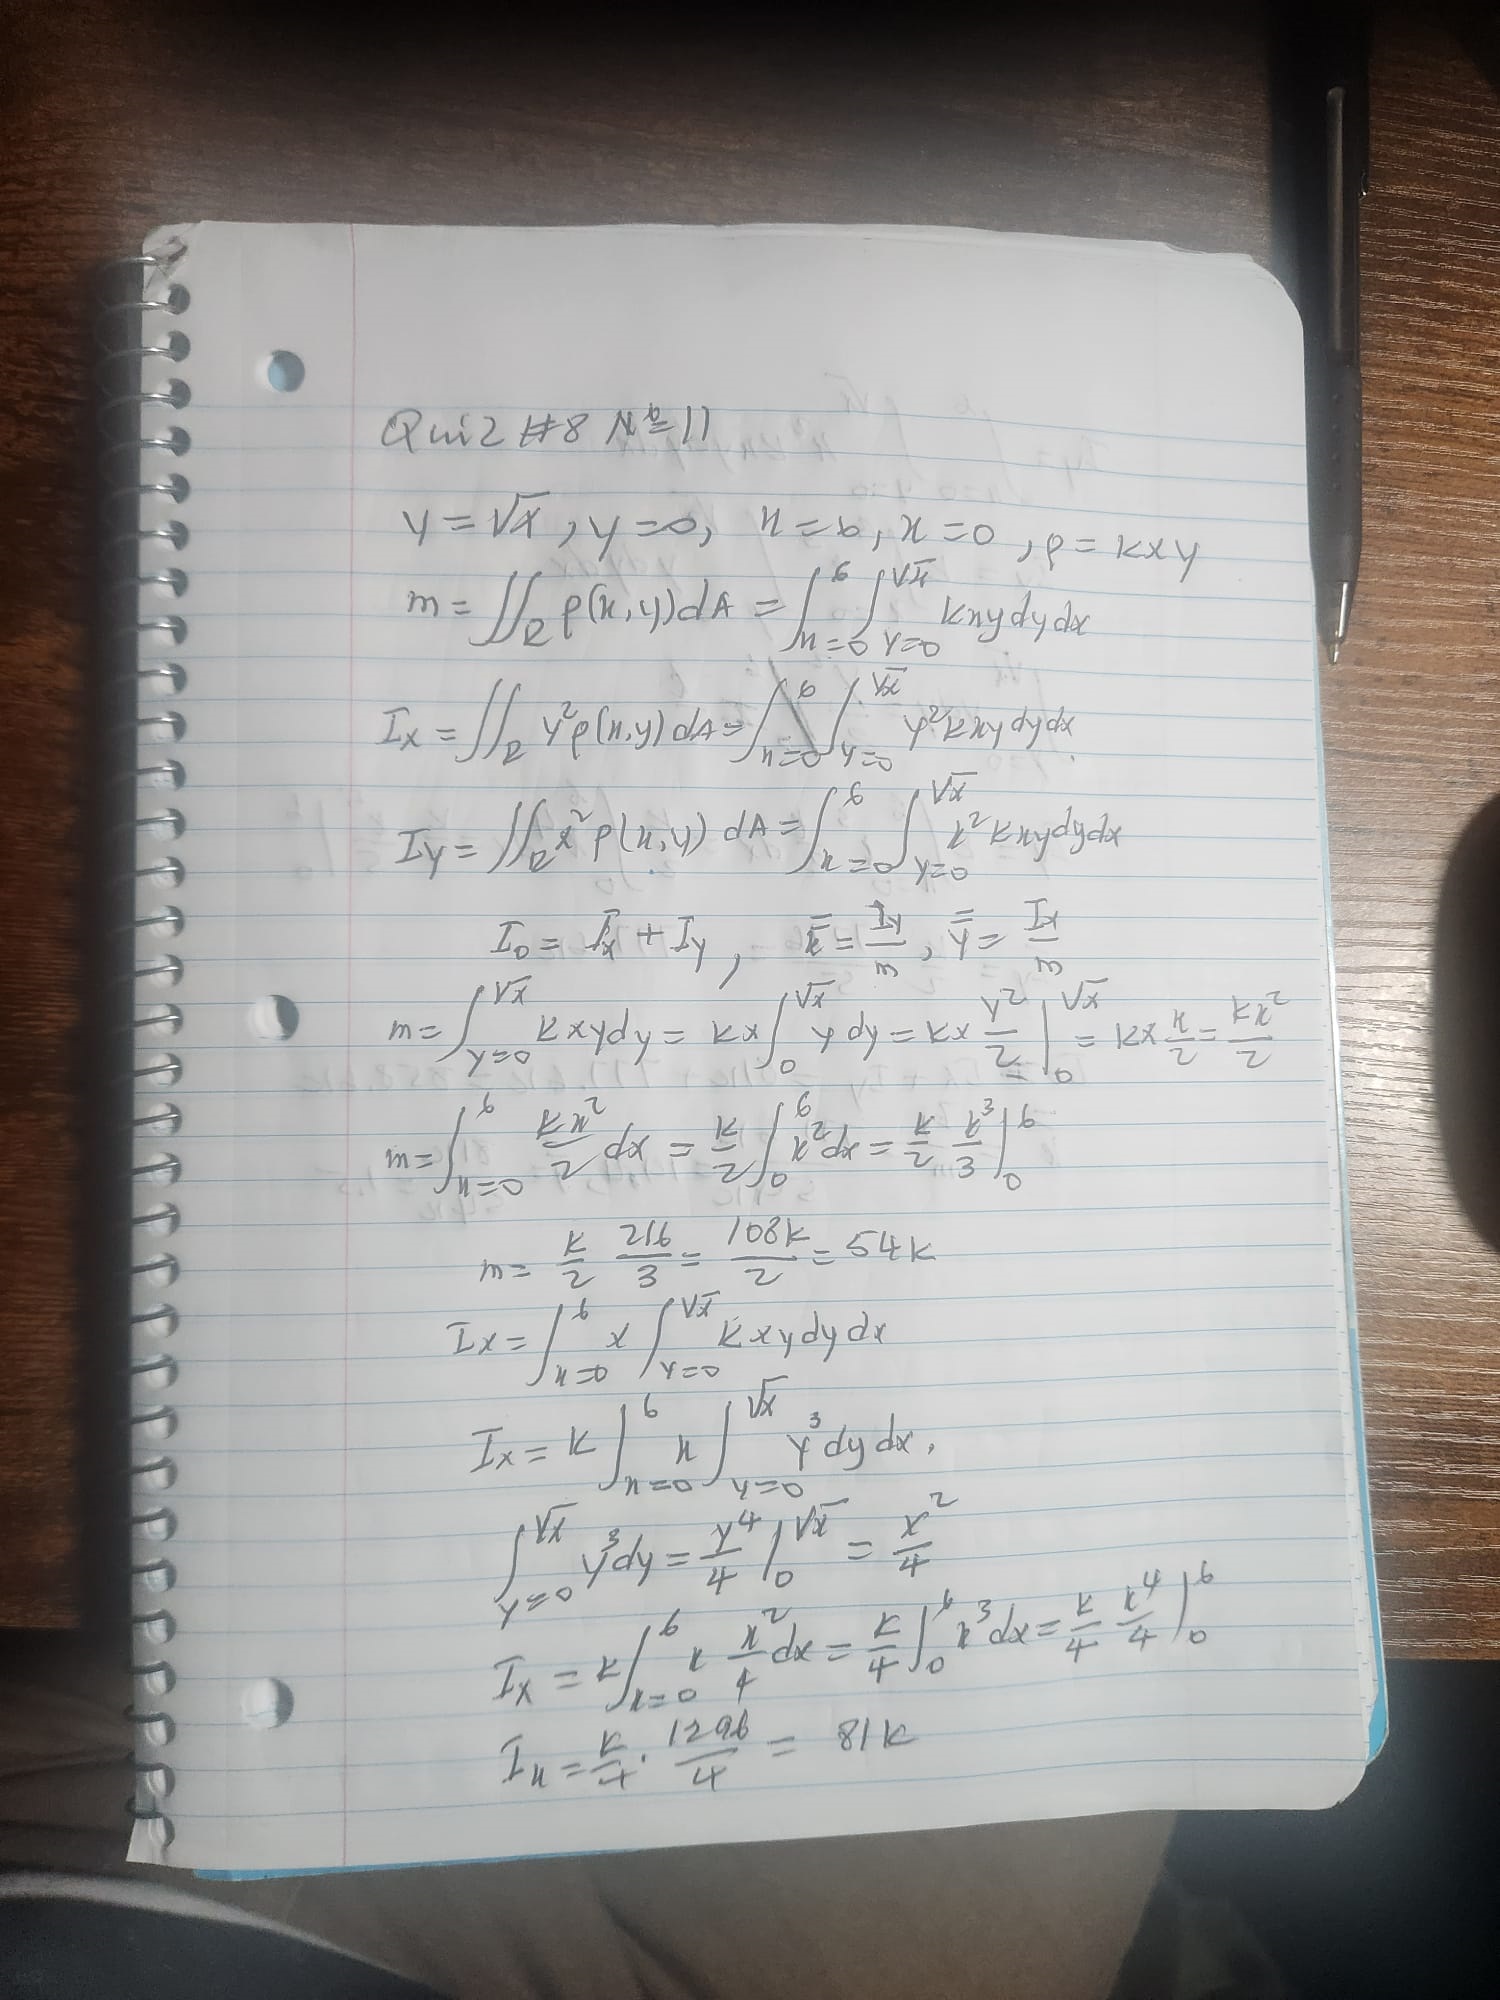 Quiz #8 Nº 11
y = √x, y = 0, x = 6, x = 0, ρ = kxy
m = ∬_R ρ(x,y)dA = ∫_{x=0}^6 ∫_{y=0}^{√x} kxy dy dx
I_x = ∬_R y² ρ(x,y) dA = ∫_{x=0}^6 ∫_{y=0}^{√x} y² kxy dy dx.
I_y = ∬_R x² ρ(x,y) dA = ∫_{x=0}^6 ∫_{y=0}^{√x} x² kxy dy dx
I_0 = I_x + I_y, x̿ = I_y/m, y̿ = I_x/m
m = ∫_{y=0}^{√x} kxy dy = kx ∫_0^{√x} y dy = kx y²/2 |_0^{√x} = kx x/2 = kx²/2
m = ∫_{x=0}^6 kx²/2 dx = k/2 ∫_0^6 x² dx = k/2 x³/3 |_0^6
m = k/2 216/3 = 108k/2 = 54k
I_x = ∫_{x=0}^6 x ∫_{y=0}^{√x} kxy dy dx
I_x = k ∫_{x=0}^6 x ∫_{y=0}^{√x} y³ dy dx,
∫_{y=0}^{√x} y³ dy = y⁴/4 |_0^{√x} = x²/4
I_x = k ∫_{x=0}^6 x x²/4 dx = k/4 ∫_0^6 x³ dx = k/4 x⁴/4 |_0^6
I_x = k/4 · 1296/4 = 81k